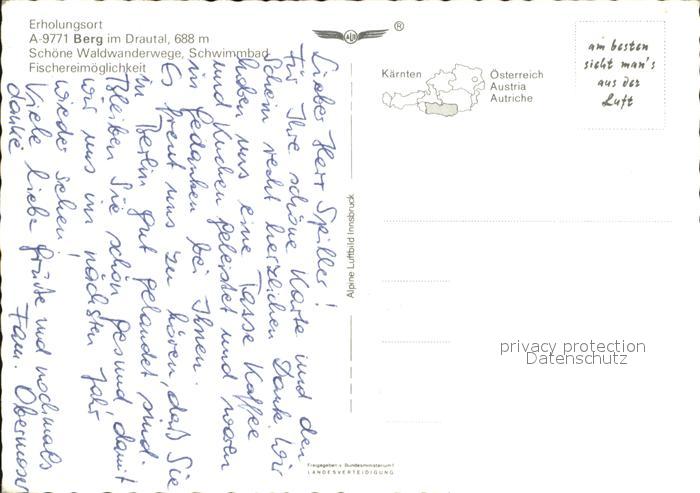 Erholungsort
A-9771 Berg im Drautal, 688 m
Schöne Waldwanderwege, Schwimmbad
Fischereimöglichkeit
Lieber Herr Spiller!
Für Ihre schöne Karte und den
Schein recht herzlichen Dank. Wir
haben uns eine Tasse Kaffee
und Kuchen geleistet und waren
in Gedanken bei Ihnen.
Es freut uns zu hören, daß Sie
in Berlin gut gelandet sind.
Bleiben Sie schön gesund, damit
wir uns im nächsten Jahr
wieder sehen!
Viele liebe Grüße und nochmals
danke Fam. Obermoser
Alpine Luftbild Innsbruck
ALPI
®
Kärnten
Österreich
Austria
Autriche
am besten
sieht man's
aus der
Luft
privacy protection
Datenschutz
Freigegeben v. Bundesministerium f.
LANDESVERTEIDIGUNG